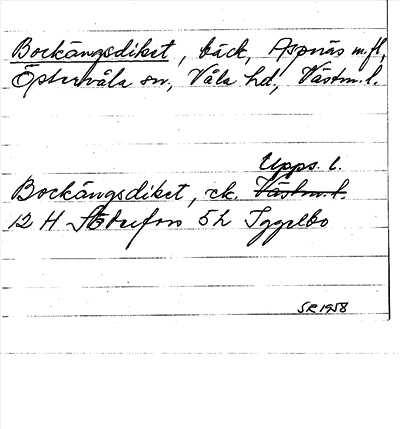 Bockängsdiket, bäck, Aspnäs m.fl.,
Östervåla sn, Våla hd, Västm. l.
Upps. l.
Bockängsdiket, ek. Västm. l.
12 H Söderfors 5 h Iggelbo
SR 1958